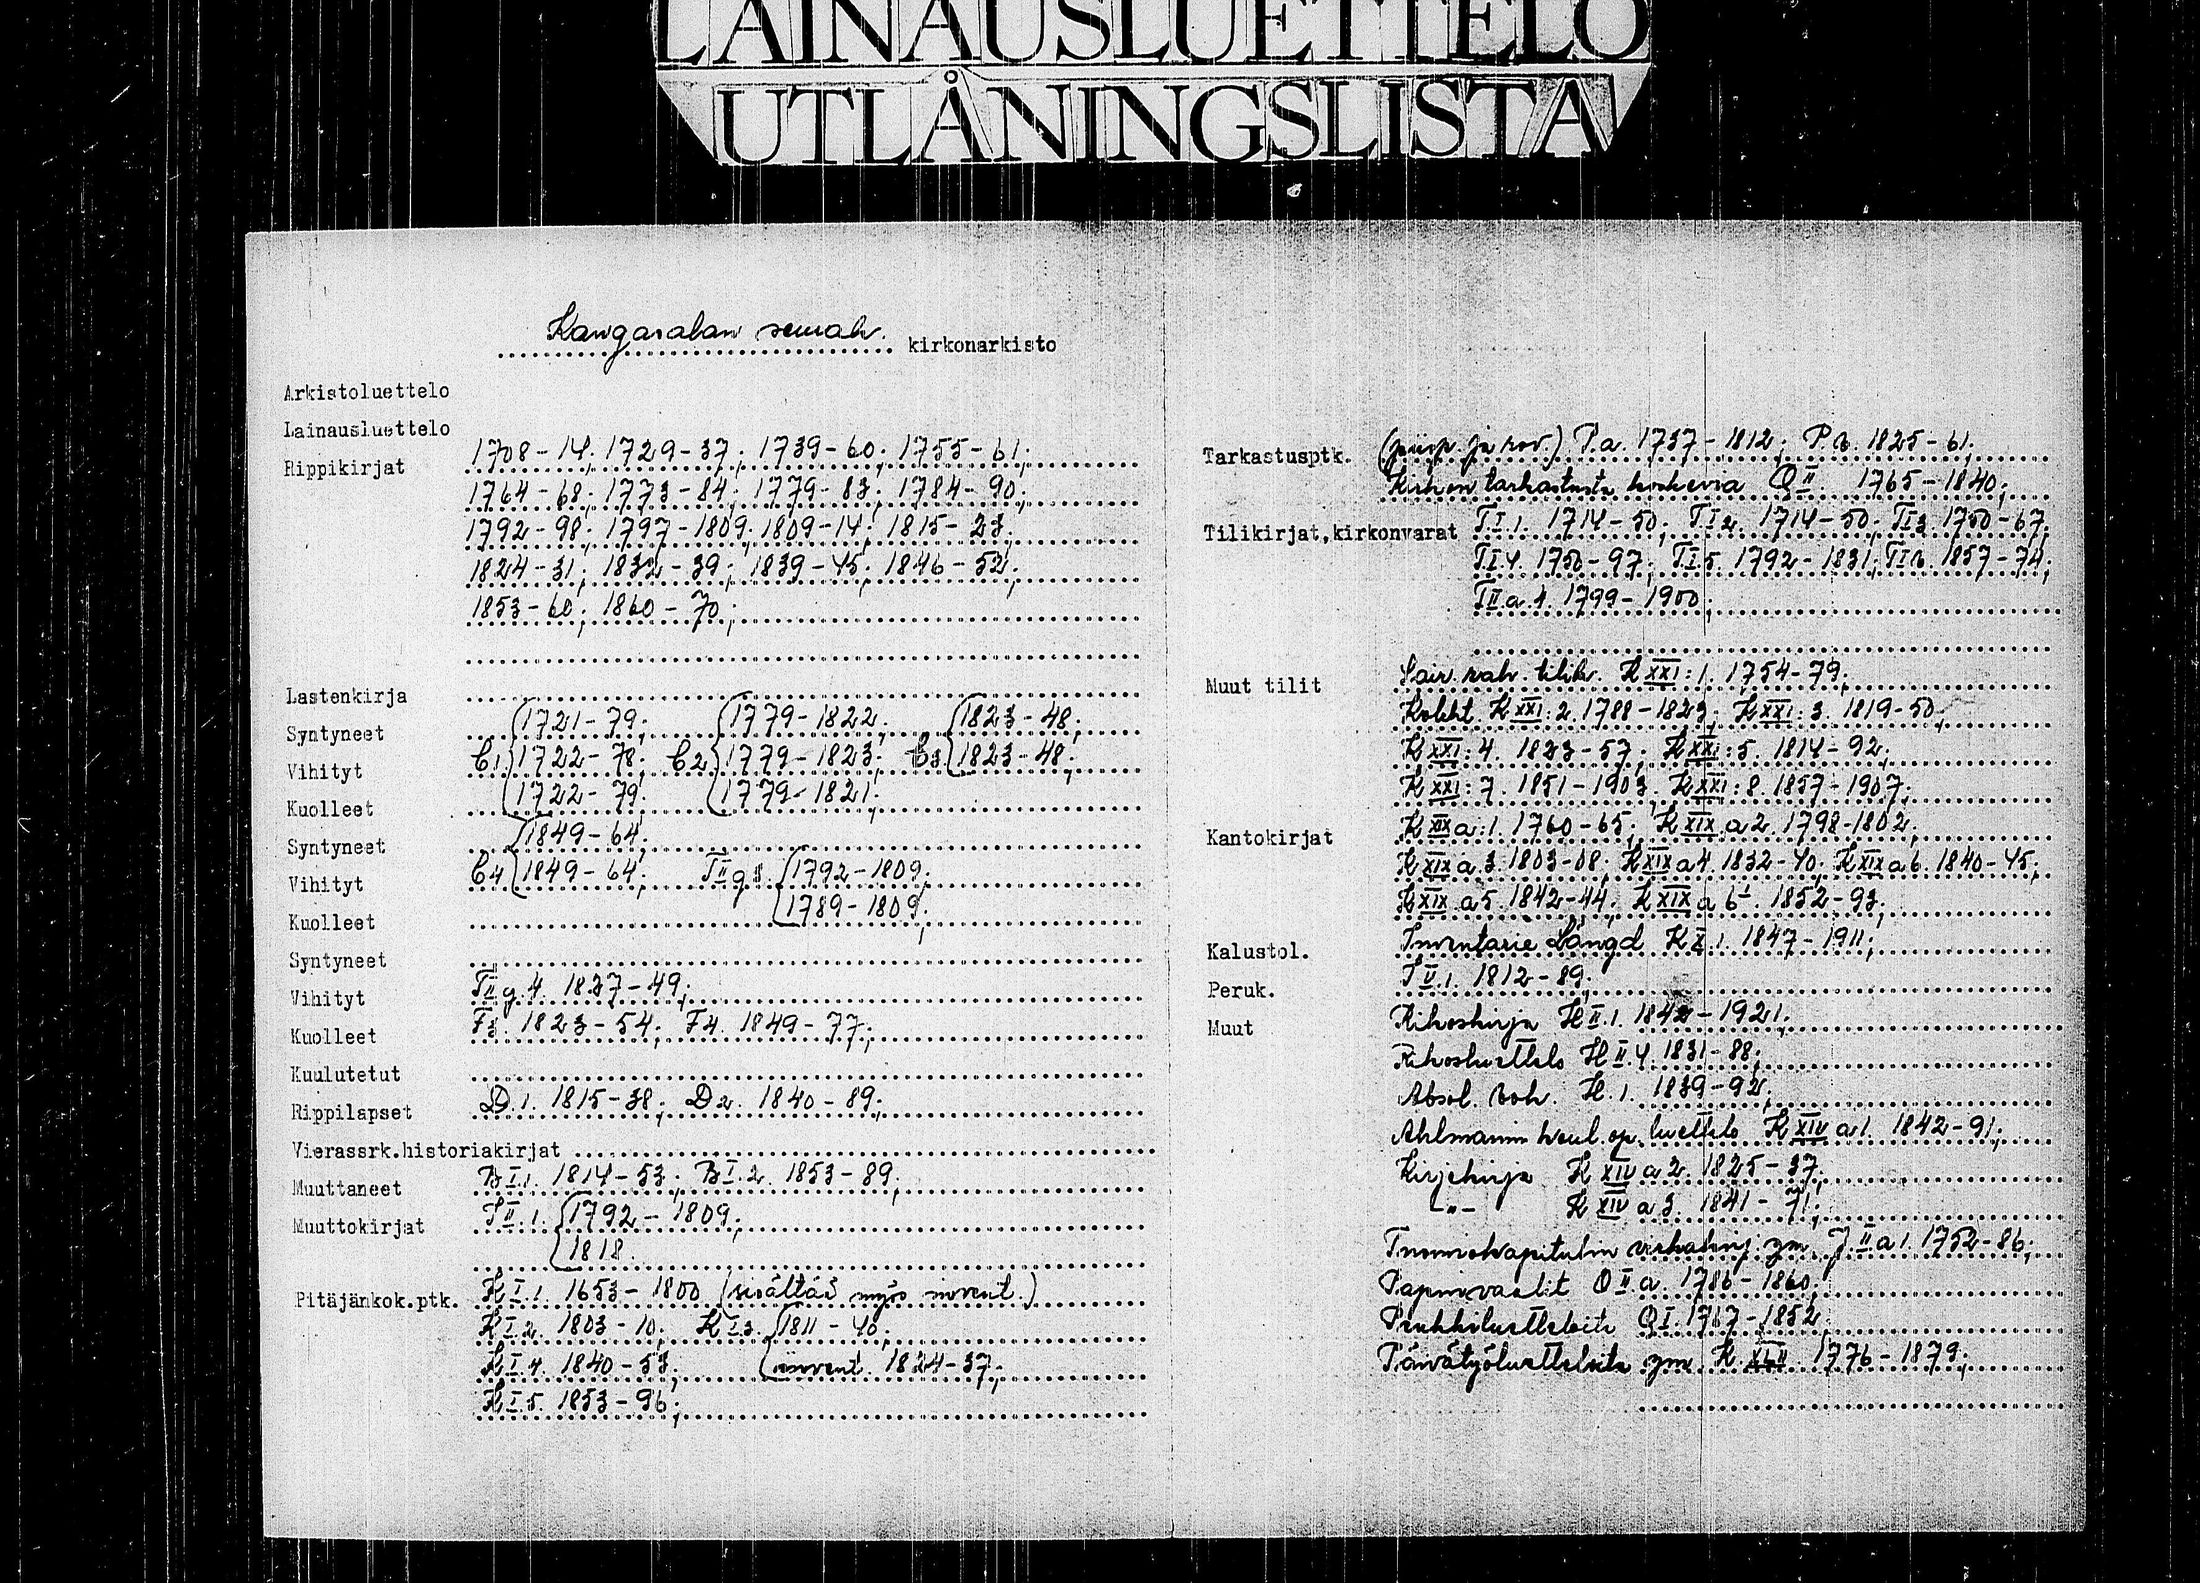 LAINAUSLUETTELO
UTLÅNINGSLISTA
Kangasalan seurak. kirkonarkisto
Arkistoluettelo
Lainausluettelo
Rippikirjat 1708-14; 1729-37; 1739-60; 1755-61;
1764-68; 1773-84; 1779-83; 1784-90;
1792-98; 1797-1809; 1809-14; 1815-23;
1824-31; 1832-39; 1839-45; 1846-52;
1853-60; 1860-70;
Lastenkirja
Syntyneet 1721-79; 1779-1822; 1823-48;
Vihityt C1. 1722-78; C2 1779-1823; C3 1823-48;
Kuolleet 1722-79; 1779-1821;
Syntyneet 1849-64;
Vihityt C4 1849-64; TII g 1792-1809;
Kuolleet 1789-1809;
Syntyneet
Vihityt TII g. 4. 1837-49;
Kuolleet F3. 1823-54; F4. 1849-77;
Kuulutetut
Rippilapset D.1. 1815-38; D2. 1840-89;
Vierassrk.historiakirjat
Muuttaneet BI.1. 1814-53; BI.2. 1853-89;
Muuttokirjat II.:1. 1792-1809;
1818.
Pitäjänkok.ptk. KI.1. 1653-1800 (sisältää myös invent.)
KI.2. 1803-10; KI.3. 1811-40;
KI.4. 1840-53; invent. 1824-37;
KI.5. 1853-96;
Tarkastusptk. (piisp. ja rov.) P.a. 1737-1812; P.b. 1825-61;
Kirkon tarkastusta koskevia QII. 1765-1840;
Tilikirjat,kirkonvarat TI.1. 1714-50; TI2. 1714-50; TI3. 1750-67;
TI.4. 1750-97; TI.5. 1792-1831; TIb. 1857-74;
TII.a.1. 1799-1900;
Muut tilit Sair. rah. tilik. KXXI:1. 1754-79;
Kolekt. KXXI:2. 1788-1823; KXXI:3. 1819-50,
KXXI:4. 1823-57; KXXI:5. 1814-92;
KXXI:7. 1851-1903. KXXI:8. 1857-1907;
Kantokirjat KXIXa:1. 1760-65; KXIX.a2. 1798-1802;
KXIXa3. 1803-08; KXIXa4. 1832-40; KXIXa6. 1840-45;
KXIX.a5. 1842-44; KXIXa6¹. 1852-93;
Kalustol. Inventarie Längd KX.1. 1847-1911;
Peruk. IV.1. 1812-89;
Muut Rikoskirja HII.1. 1842-1921;
Rikosluettelo HII.4. 1831-88;
Absol. bok. H.1. 1839-92;
Ahlmannin koul. op. luettelo KXIVa1. 1842-91;
Kirjekirja KXIVa2. 1825-37.
-"- KXIVa3. 1841-71;
Tuomiokapitulin virkakirj. ym. J.IIa1. 1752-86;
Papinvaalit OII.a. 1786-1860;
Penkkiluetteloita QI. 1767-1852;
Päivätyöluetteloita ym. K. 1776-1879;